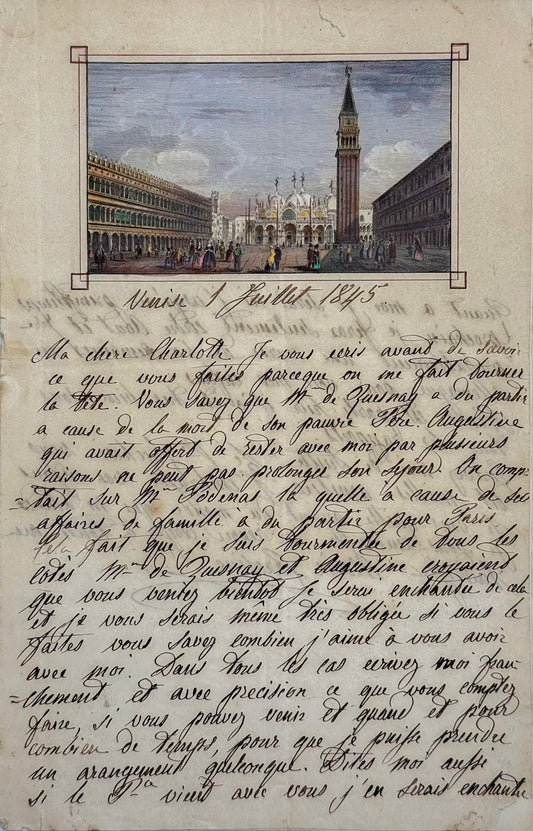 Venise 1 Juillet 1845
Ma chere Charlothe Je vous ecris avant de savoir
ce que vous faites parceque on me fait tourner
la tête. Vous savez que Mme de Quesnay a du partir
a cause de la mort de son pauvre Pere. Augustine
qui avait offert de rester avec moi par plusieurs
raisons ne peut pas prolonger son séjour. On comp
=tait sur Mme Podenas la quelle à cause de ses
affaires de famille à du partir pour Paris.
Cela fait que je suis tourmentée de tous les
cotés Mme de Quesnay et Augustine croyaient
que vous veniez bientot je serai enchantée de cela
et je vous serais même très obligée si vous le
faites vous savez combien j'aime à vous avoir
avec moi. Dans tous les cas ecrivez moi fran
=chement et avec precision ce que vous comptez
faire, si vous pouvez venir et quand et pour
combien de temps, pour que je puisse prendre
un arangement quelconque. Dites moi aussi
si le vient avec vous j'en serais enchantée